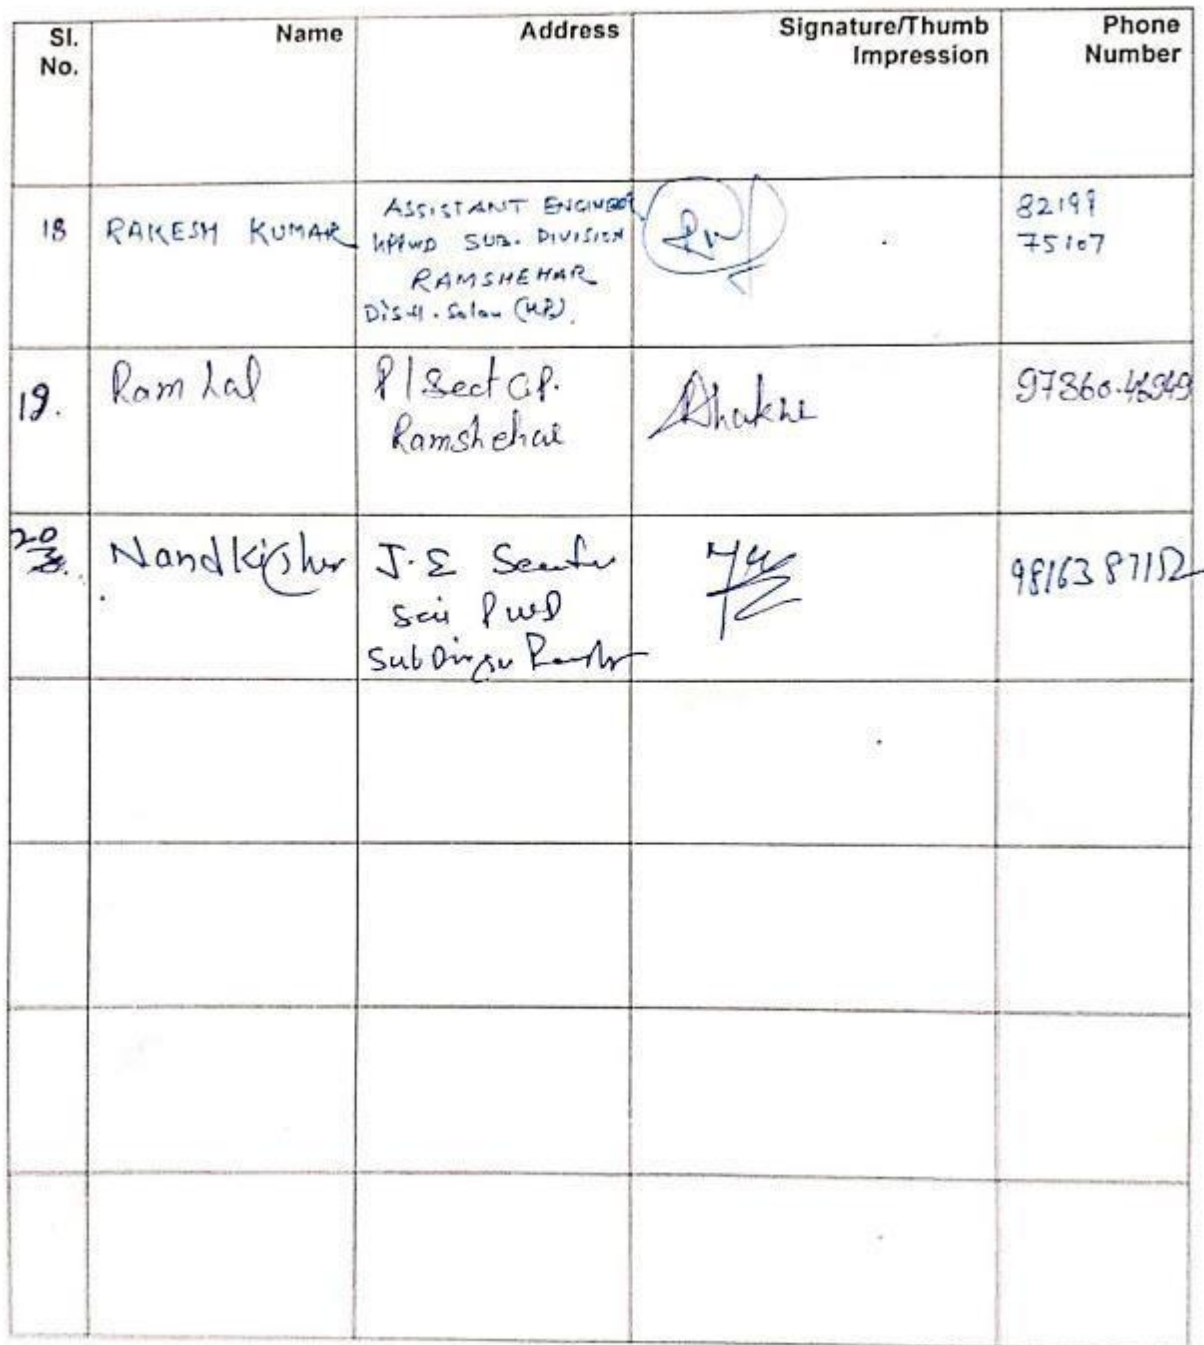 Sl. No. Name Address Signature/Thumb Impression Phone Number
18 RAKESH KUMAR ASSISTANT ENGINEER
HPPWD SUB. DIVISION
RAMSHEHAR
Distt. Solan (HP).
82199
75107
19. Ram Lal P/Sect GP.
Ramshehar
97360-46949
20 Nand Kishor J.E
PWD
Sub
98163 87152